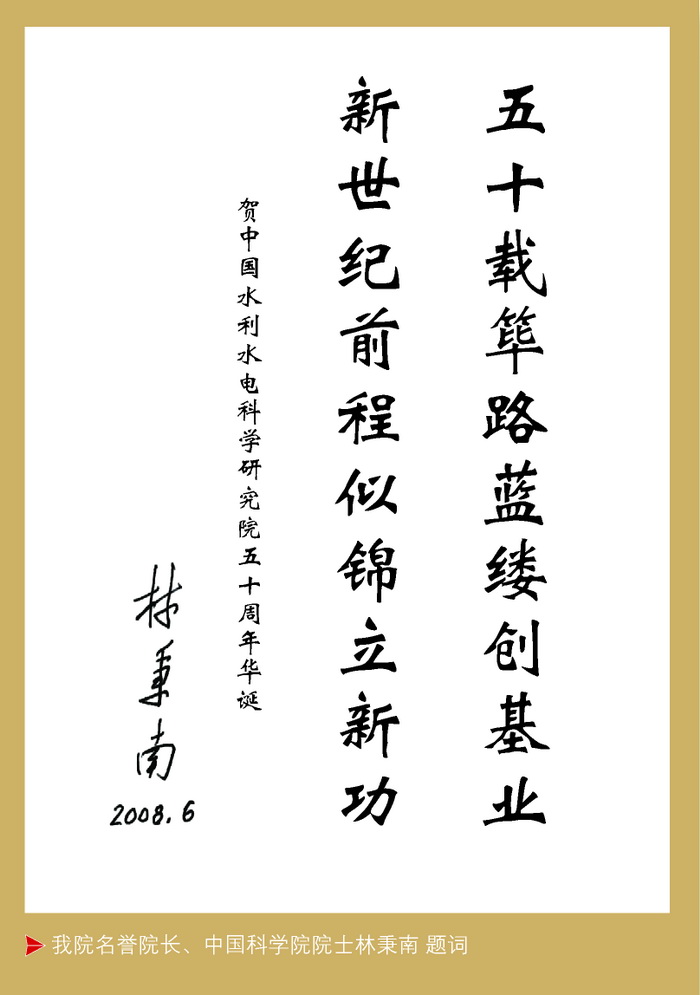 五十载筚路蓝缕创基业
新世纪前程似锦立新功
贺中国水利水电科学研究院五十周年华诞
林秉南
2008.6
我院名誉院长、中国科学院院士林秉南 题词